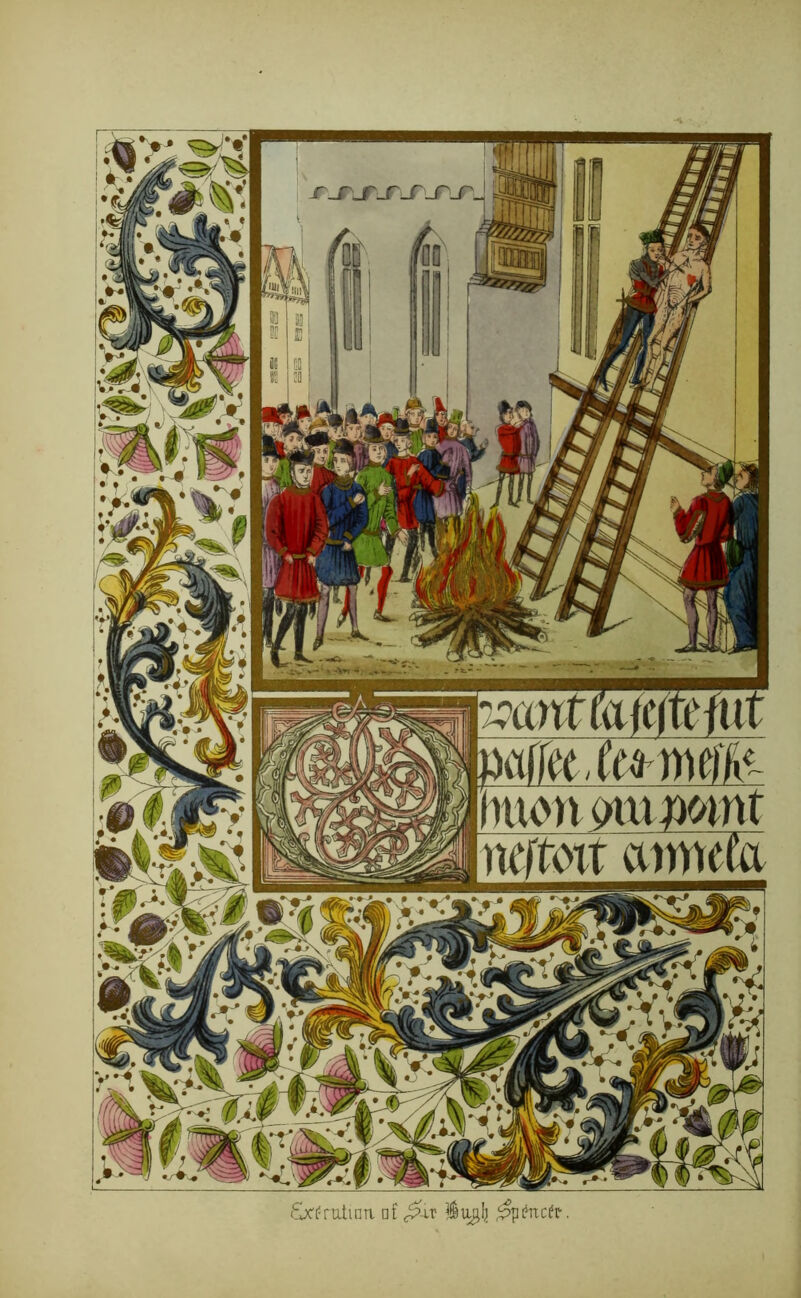 Quant la feste fut
passee . ce messire
huon qui point
nestoit ayme la
Execution of Sir Hugh Spencer.